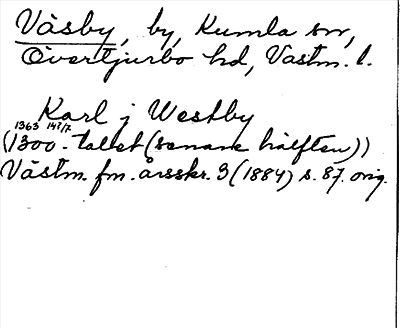 Väsby, by, Kumla sn,
Övertjurbo hd, Västm. l.
Karl j Westby
1363 14?/7
(1300-talet (senare hälften))
Västm. fm. årsskr. 3 (1884) s. 87. orig.